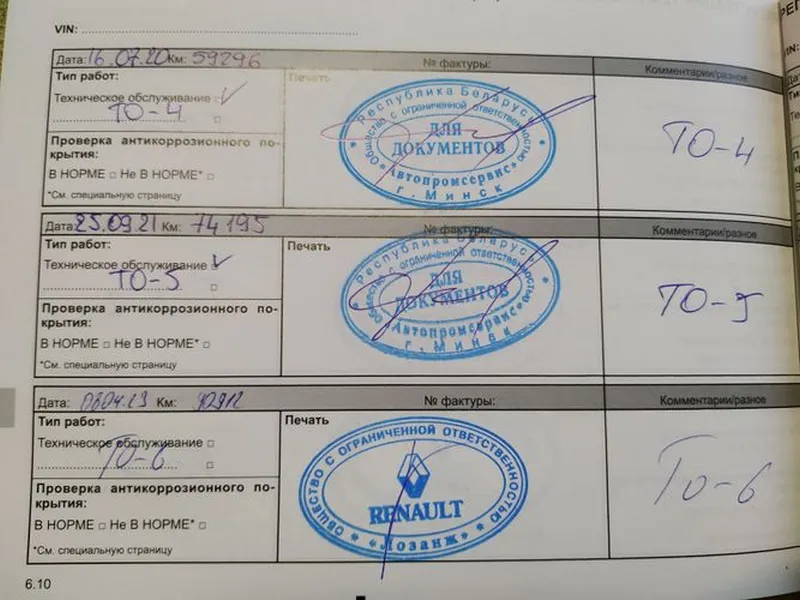 VIN:
Дата: 16.07.20 Км: 59296 № фактуры: Комментарии/разное
Тип работ: Печать
Техническое обслуживание
ТО-4
Проверка антикоррозионного по-
крытия:
В НОРМЕ □ Не В НОРМЕ* □
*См. специальную страницу
Республика Беларусь
Общество с ограниченной ответственностью
ДЛЯ
ДОКУМЕНТОВ
«Автопромсервис»
г. Минск
ТО-4
Дата: 25.09.21 Км: 74195 № фактуры: Комментарии/разное
Тип работ: Печать
Техническое обслуживание
ТО-5
Проверка антикоррозионного по-
крытия:
В НОРМЕ □ Не В НОРМЕ* □
*См. специальную страницу
Республика Беларусь
Общество с ограниченной ответственностью
ДЛЯ
ДОКУМЕНТОВ
Автопромсервис
г. Минск
ТО-5
Дата: Км: № фактуры: Комментарии/разное
Тип работ: Печать
Техническое обслуживание □
ТО-6
Проверка антикоррозионного по-
крытия:
В НОРМЕ □ Не В НОРМЕ* □
*См. специальную страницу
ОБЩЕСТВО С ОГРАНИЧЕННОЙ ОТВЕТСТВЕННОСТЬЮ
RENAULT
«Лозанж»
ТО-6
6.10